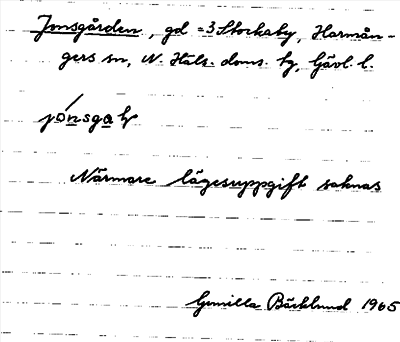 Jonsgården, gd =3 Stockaby, Harmån-
gers sn, N. Häls. doms. hg, Gävl. l.
jónsga
Närmare lägesuppgift saknas
Gunilla Bäcklund 1965